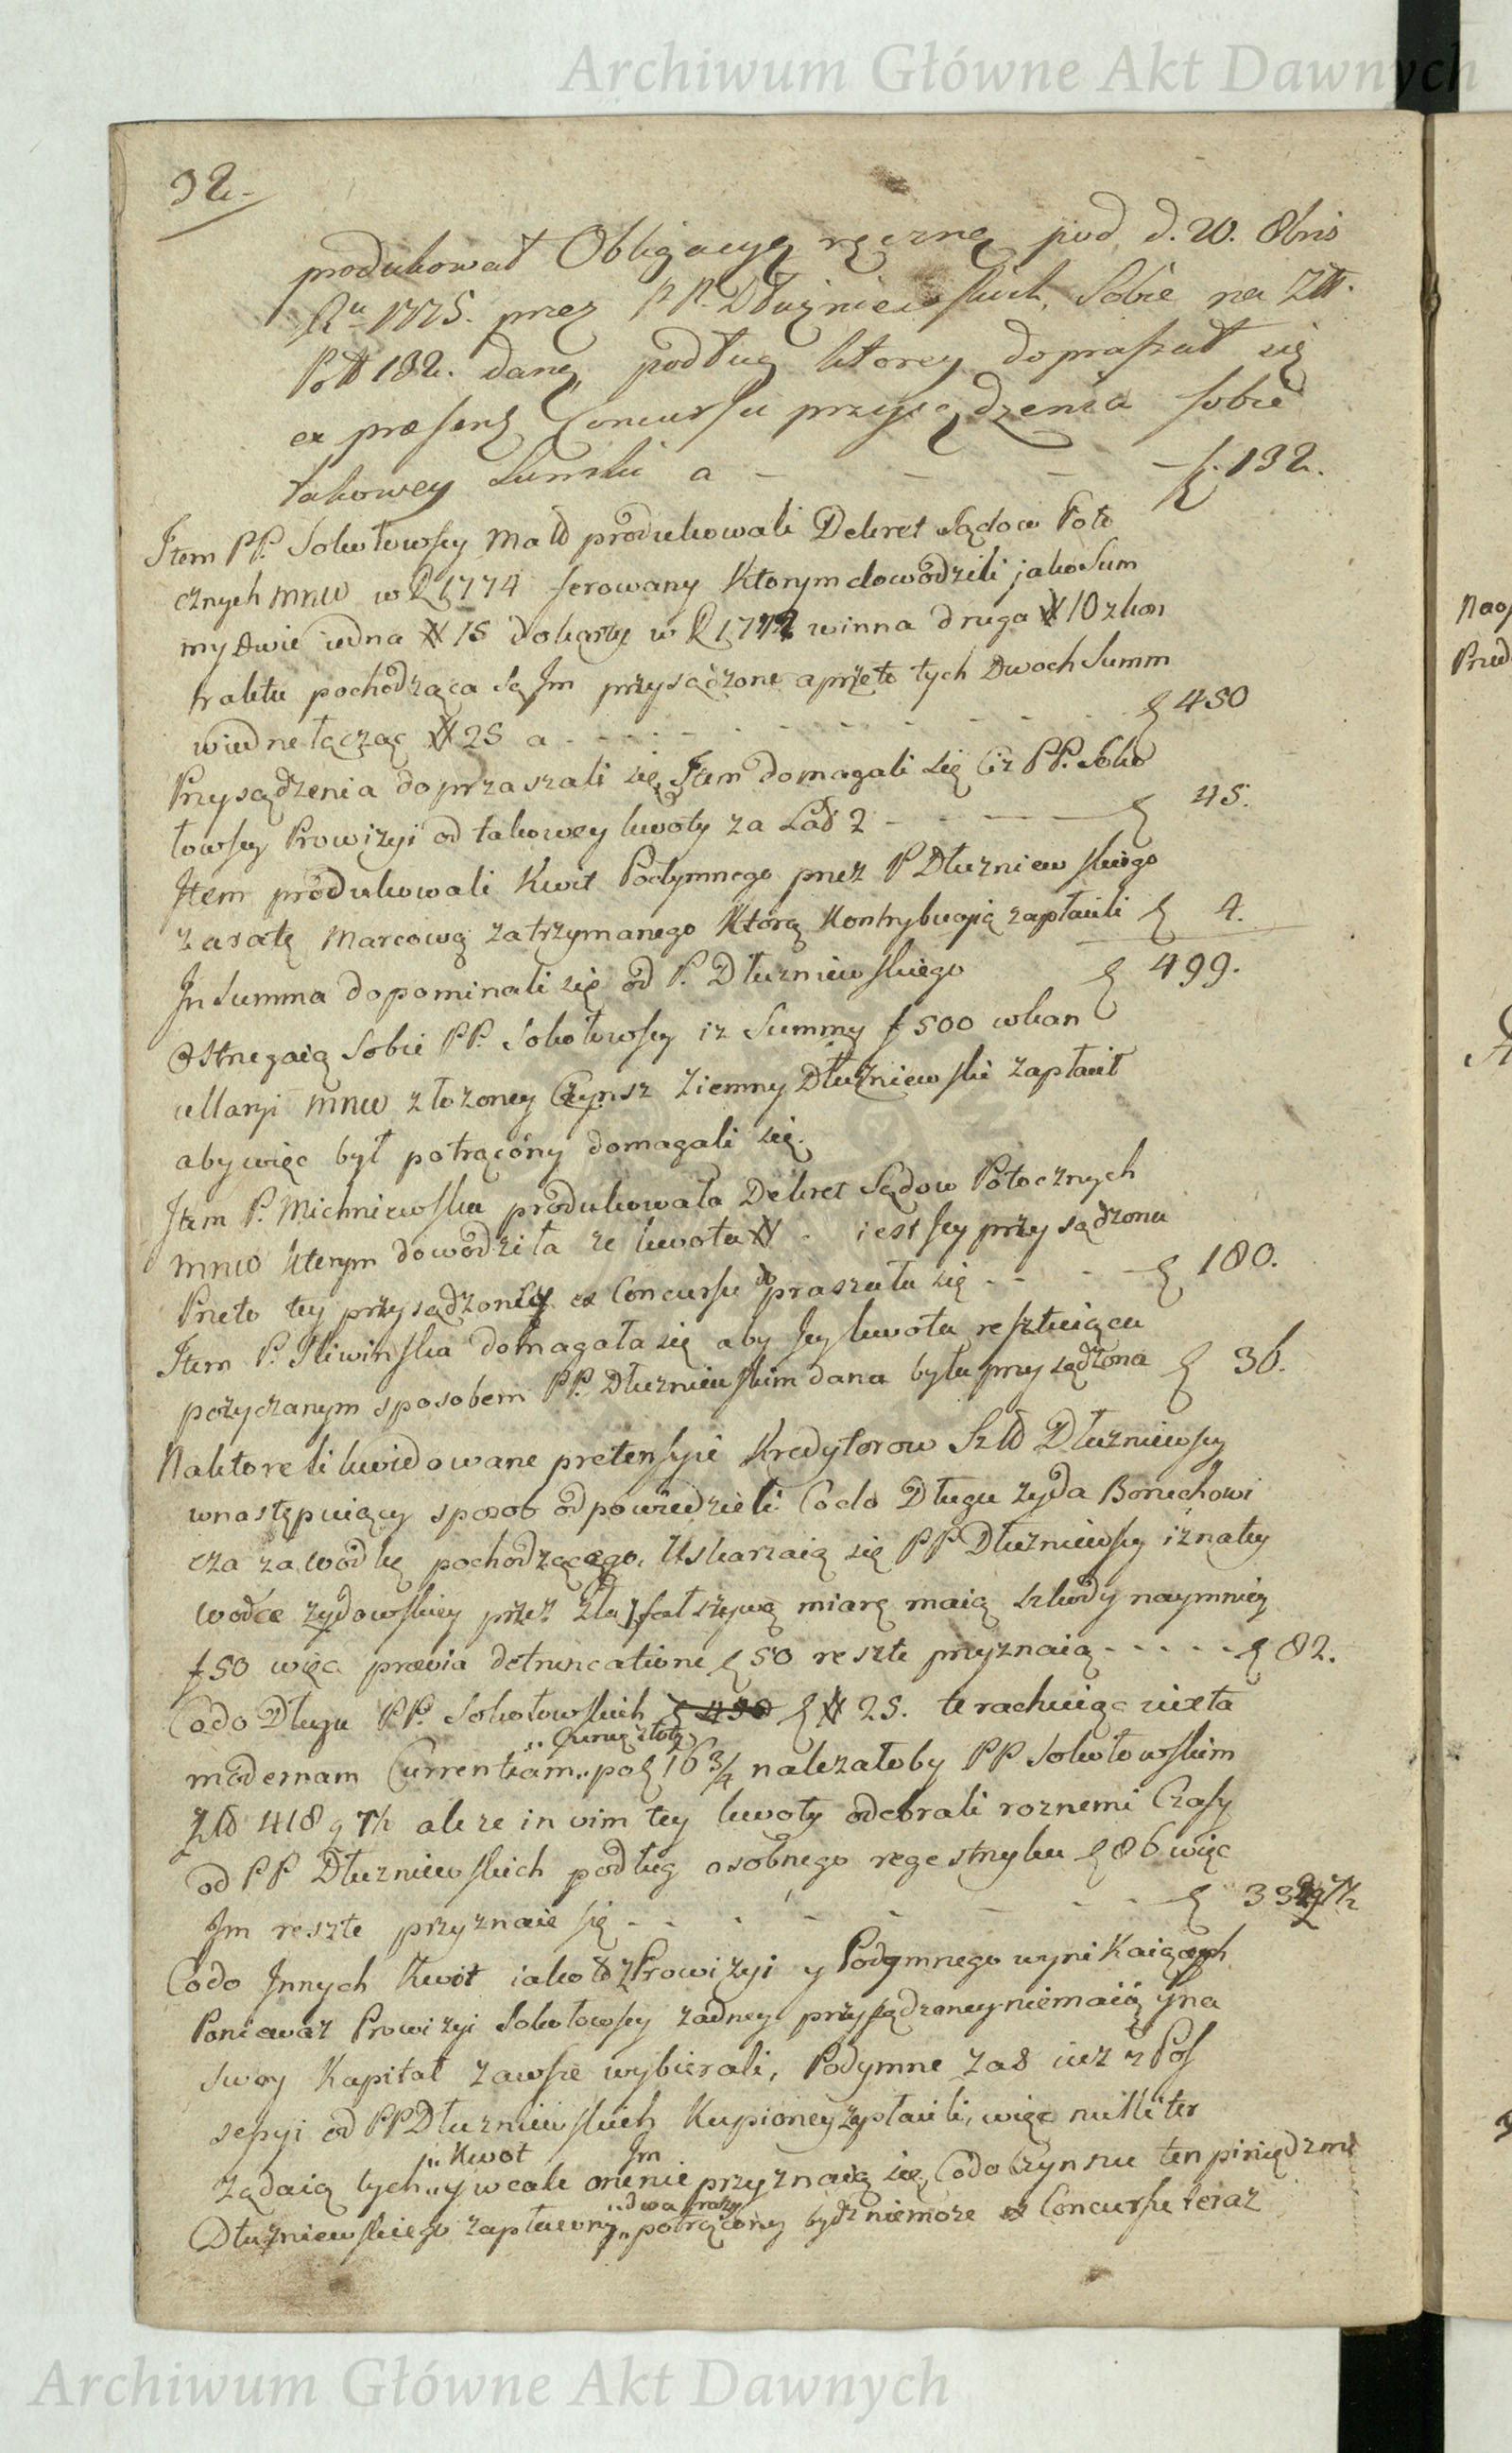 Archiwum Główne Akt Dawnych
92.
produkował Obligacyę ręczną pod d. 20. 8bris
Ru 1775. przez PP. Dłużniewskich, Sobie na Złł.
Poll 132. daną, podług ktorey dopraszał się
ex præsenti Concursu przysądzenia sobie
takowey Summki a - - - - f. 132.
Item PP. Sokołowscy Małż produkowali Dekret Sądow Poto
cznych MNW w R 1774 ferowany Ktorym dowodzili jako Sum
my dwie iedna # 15 Dokarty w R 1772 winna druga # 10 z kon
traktu pochodząca są Jm przysądzone a przeto tych Dwoch Summ
wiedne łącząc # 25 a - - - - - f 450
Przysądzenia dopraszali się, Item domagali się Ciż PP. Soko
łowscy Prowizyi od takowey kwoty za Lad 2 - - - f 45.
Item produkowali Kwit Podymnego przez P Dłuzniewskiego
za ratę Marcową zatrzymanego Którą Kontrybucyią zapłacili f 4.
In Summa dopominali się od P. Dłuzniewskiego f 499.
Ostrzegaią Sobie PP. Sokołowscy iz Summy f 500 w kan
cellaryi MNW złozoney Czynsz Ziemny Dłużniewski zapłacił
aby więc był potrącony domagali się.
Item P. Michniewska produkowała Dekret Sądow Potocznych
MNW Kterym dowodziła ze kwota # . iest Jey przysądzona
Przeto tey przysądzoney ex Concursu dopraszała się - - - f 180.
Item P. Sliwinska domagała się aby Jey kwota resztuiąca
pozyczanym sposobem PP. Dłuzniewskim dana była przysądzona f 36.
Na ktore likwidowane pretensyie Kredytorow Szld Dłuzniewscy
w następuiący sposob odpowiedzieli Co do Długu zyda Boruchowi
cza za wodkę pochodzącego, Uskarzaią się PP Dłuzniewscy iz na tey
wodce zydowskiey przez złą y fałszywą miarę maią szkody naymniey
f 50 więc prævia detruncatione f 50 resztę przyznaią - - - - - f 82.
Co do Długu PP. Sokołowskich f 450 f # 25. te rachuiąc iuxta
„ Czerwo złoty
modernam Currentiam „ po f 16 3/4 nalezałoby PP Sokołowskim
Złd 418 g 7½ ale ze in vim tey kwoty odebrali roznemi Czasy
od PP Dłuzniewskich podług osobnego regestrzyku f 86 więc
Jm reszte przyznaie się - - - - - - - f 332 g 7½
Co do Innych Kwot iako to z Prowizyi y Podymnego wynikaiących
Poniewaz Prowizyi Sokołowscy zadney przysądzoney niemaią y na
swoy Kapitał zawsze wybierali, Podymne zas iuz z Pos
sessyi od PP Dłuzniewskich Kupioney zapłacili, więc nulliter
„ Kwot Jm
ządaią tych „ y wcale one nie przyznaią się, Co do Czynszu ten pieniędzmi
„ dwa razy
Dłużniewskiego zapłacony „ potrącony bydz niemoze ex Concursu teraz
Archiwum Główne Akt Dawnych